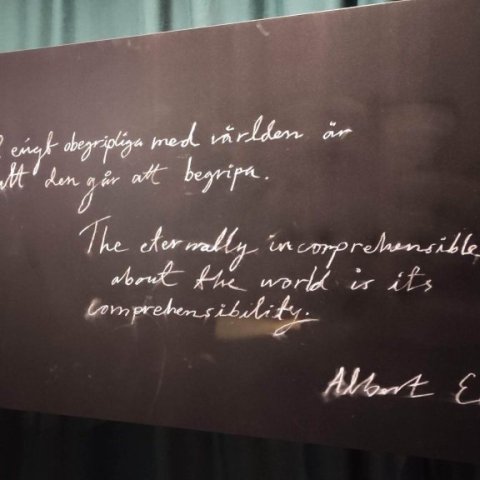 evigt obegripliga med världen är
att den går att begripa.
The eternally incomprehensible
about the world is its
comprehensibility.
Albert E